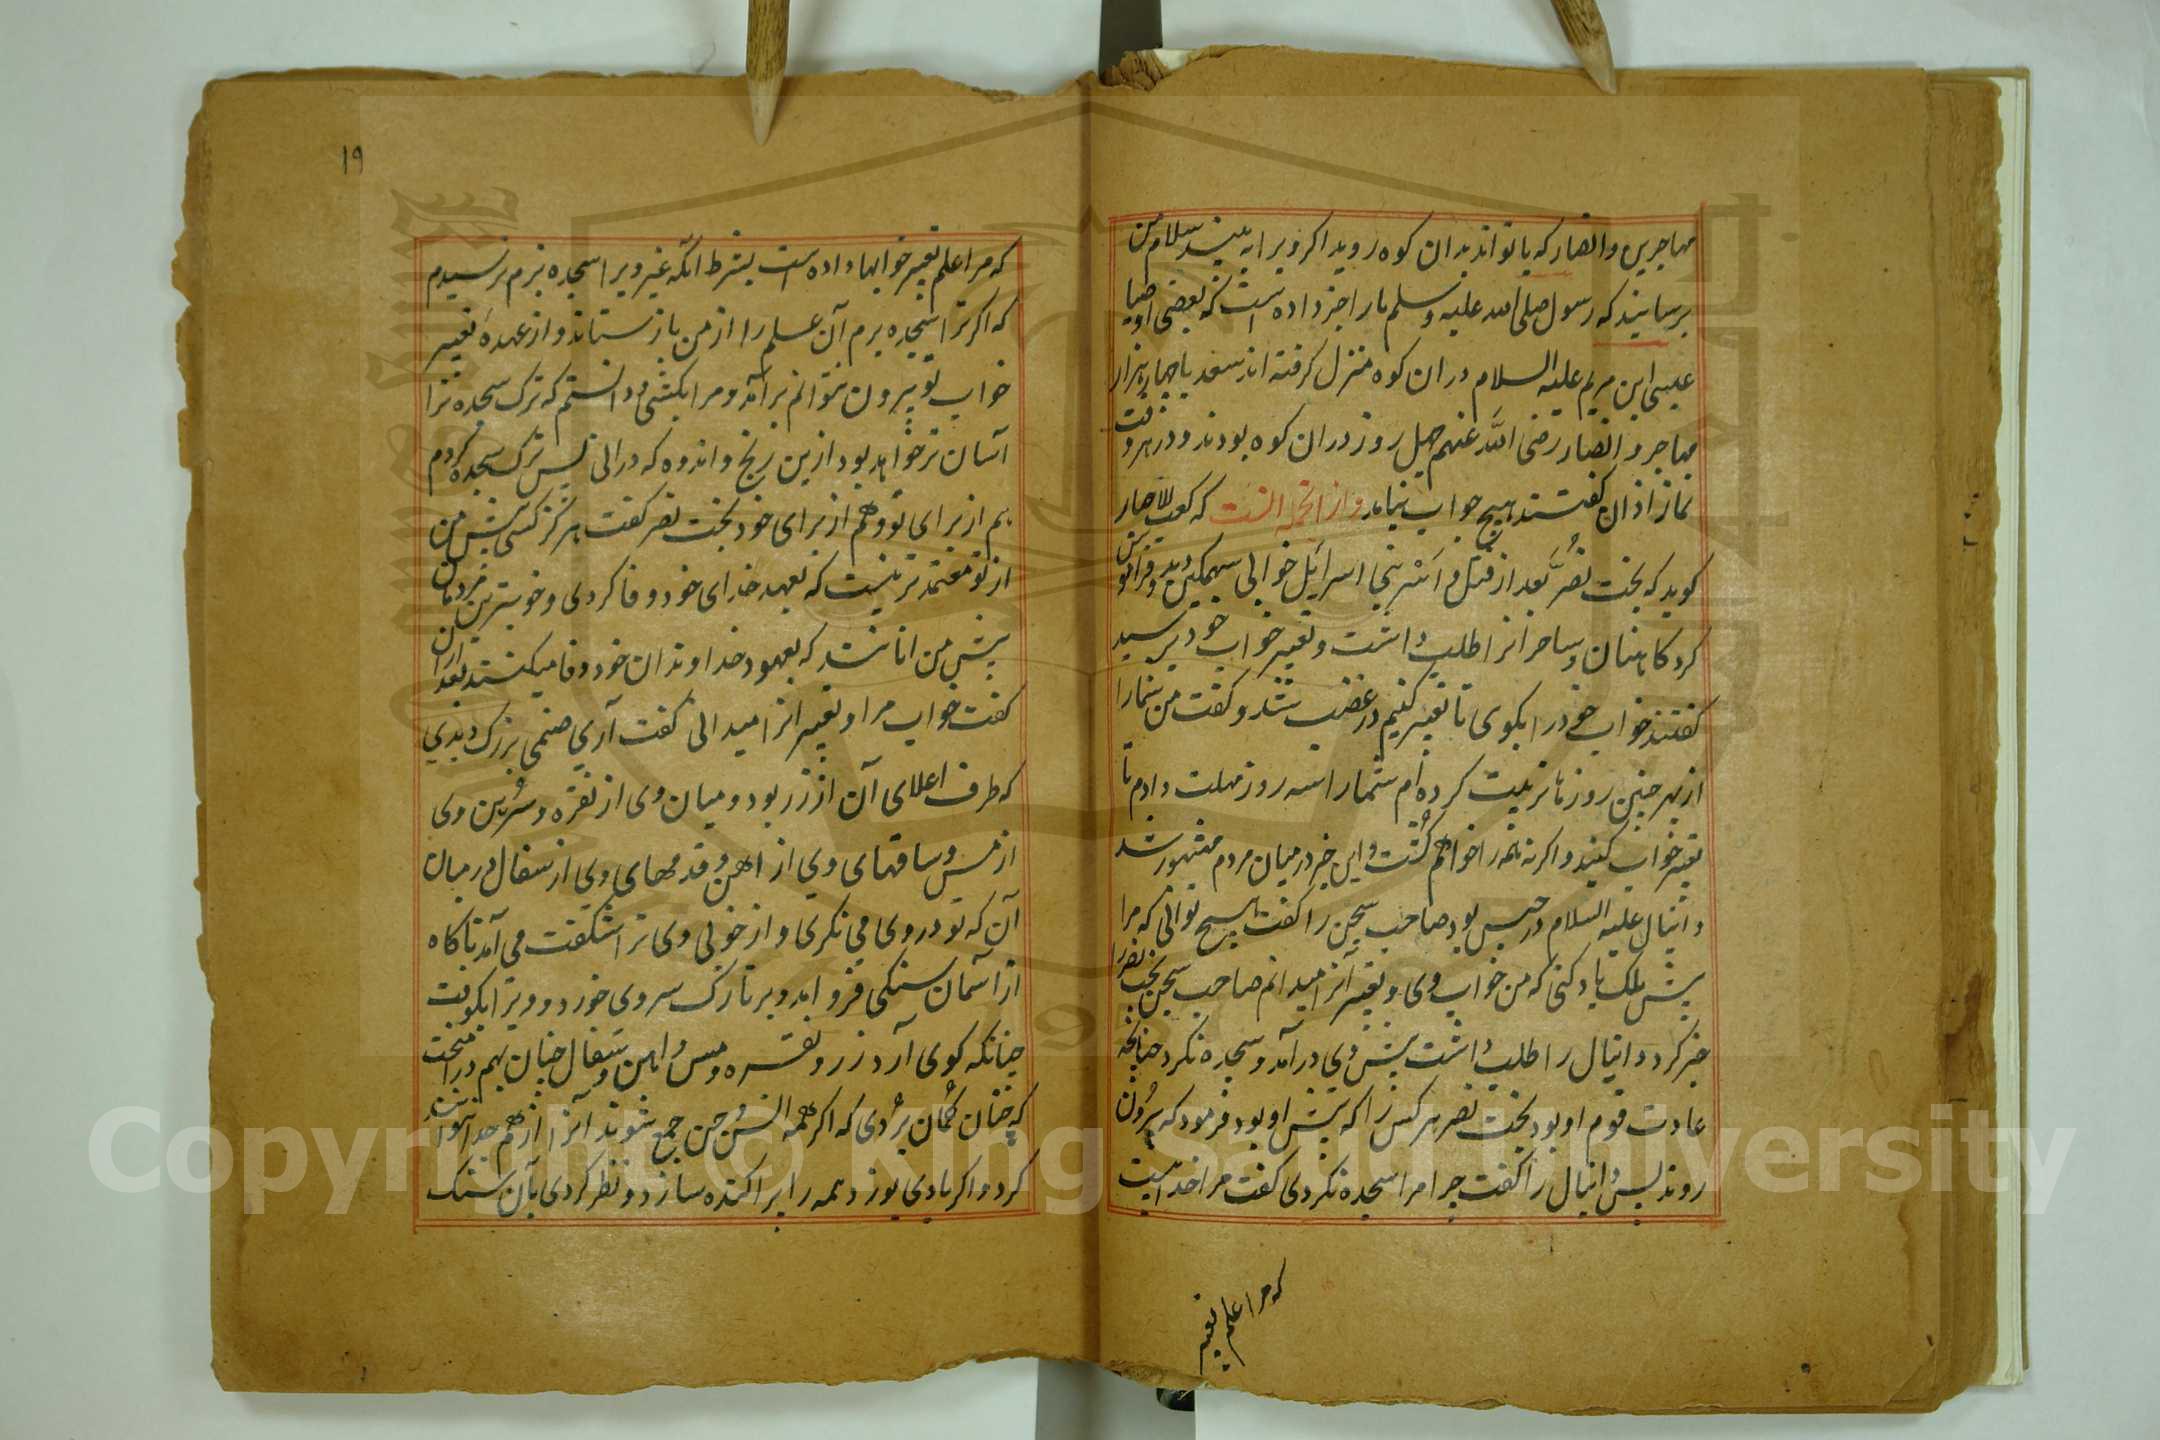 مهاجرین و انصار که با تو اند بدان کوه روید اکر ویرا به بینید سلام من
برسانید که رسول صلی الله علیه وسلم مارا خبر داده است که بعضی اوصیا
عیسی ابن مریم علیه السلام دران کوه منزل کرفته اند سعد با چهار هزار
مهاجر و انصار رضی الله عنهم چهل روز دران کوه بودند و در هر وقت
نماز اذان کفتند هیچ جواب نیامد و از انجمله انست که کعب الاحبار
کوید که بخت نصر بعد از قتل و اسر بنی اسرائیل خوابی سهمکین دید و فراموش
کرد کاهنان و ساحرانرا طلب داشت و تعبیر خواب خود پرسید
کفتند خواب خود را بکوی تا تعبیر کنیم در غضب شد و کفت من شمارا
از بهر چنین روزها تربیت کرده ام شمارا سه روز مهلت دادم تا
تعبیر خواب کنید و اکر نه همه را خواهم کشت و این خبر در میان مردم مشهور شد
دانیال علیه السلام در حبس بود صاحب سجن را کفت هیچ توانی که مرا
پیش ملک یاد کنی که من خواب وی و تعبیر آنرا میدانم صاحب سجن بخت نصر را
خبر کرد دانیال را طلب داشت پیش وی درآمد و سجده نکرد چنانچه
عادت قوم او بود بخت نصر هر کس را که پیش او بود فرمود که بیرون
روند پس دانیال را کفت چرا مرا سجده نکردی کفت مرا خدائیست
که مرا علم تعبیر
۱۹
که مرا علم تعبیر خوابها داده است بشرط آنکه غیر ویرا سجده نبرم ترسیدم
که اکر ترا سجده برم آن علم را از من باز ستاند و از عهده تعبیر
خواب تو بیرون نتوانم برآمد و مرا بکشی و دانستم که ترک سجده ترا
آسان تر خواهد بود ازین رنج و اندوه که در انی پس ترک سجده کردم
هم از برای تو و هم از برای خود بخت نصر کفت هرکز کسی پیش من
از تو معتمد تر نیست که بعهد خدای خود وفا کردی و خوبترین مردمان
پیش من انانند که بعهود خداوندان خود وفا میکنند بعد ازان
کفت خواب مرا و تعبیر انرا میدانی کفت آری صنمی بزرک دیدی
که طرف اعلای آن از زر بود و میان وی از نقره و سرین وی
از مس و ساقهای وی از اهن و قدمهای وی از سفال در میان
آن که تو در وی می نکری و از خوبی وی ترا شکفت می آمد ناکاه
از آسمان سنکی فرو امد و بر تارک سر وی خورد و ویرا بکوفت
چنانکه کوی آرد زر و نقره و مس و اهن و سفال چنان بهم درامیخت
که چنان کمان بردی که اکر همه انس و جن جمع شوند آنرا از هم جدا نتوانند
کرد و اکر بادی بوزد همه را پراکنده سازد و نظر کردی بآن سنک
Copyright © King Saud University